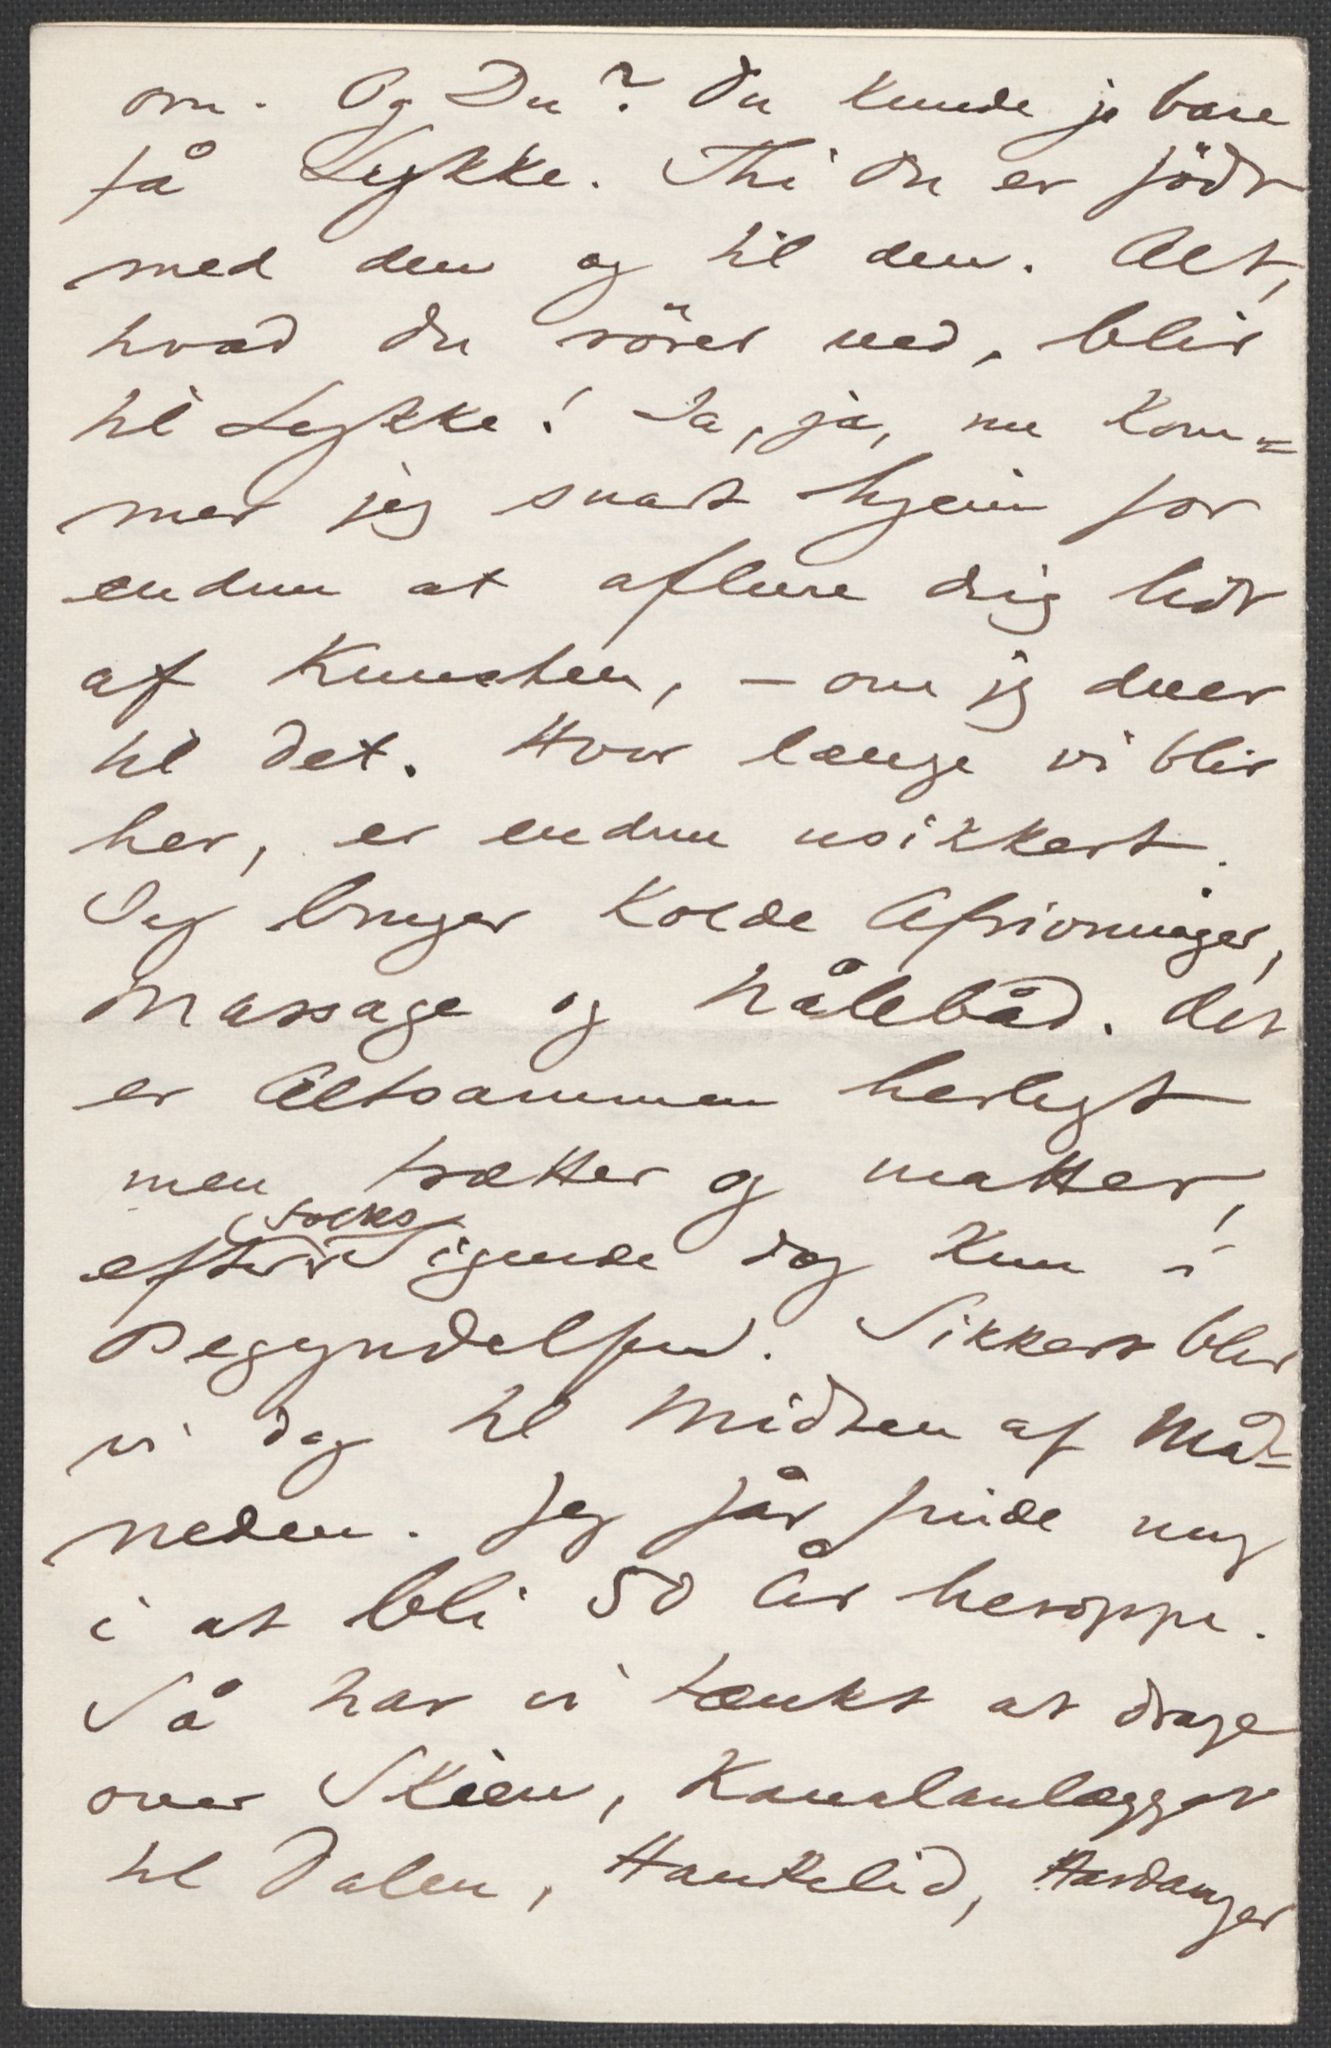 om. Og Du? Du kunde jo bare
få Lykke. Thi Du er födt
med den og til den. Alt,
hvad Du rörer ved, blir
til Lykke! Ja, ja, nu kom=
mer jeg snart hjem for
endnu at aflure dig lidt
af Kunsten, – om jeg duer
til det. Hvor længe vi blir
her, er endnu usikkert.
Jeg bruger kolde Afrivninger,
Massage og Nålebad. Det
er Altsammen herligt
men trætter og matter,
efter Sigende dog kun i
Begyndelsen. Sikkert blir
vi dog til Midten af Må=
neden. Jeg får finde mig
i at bli 50 År heroppe.
Så har vi tænkt at drage
over Skien, Kanalanlægget
til Dalen, Haukelid, Hardanger